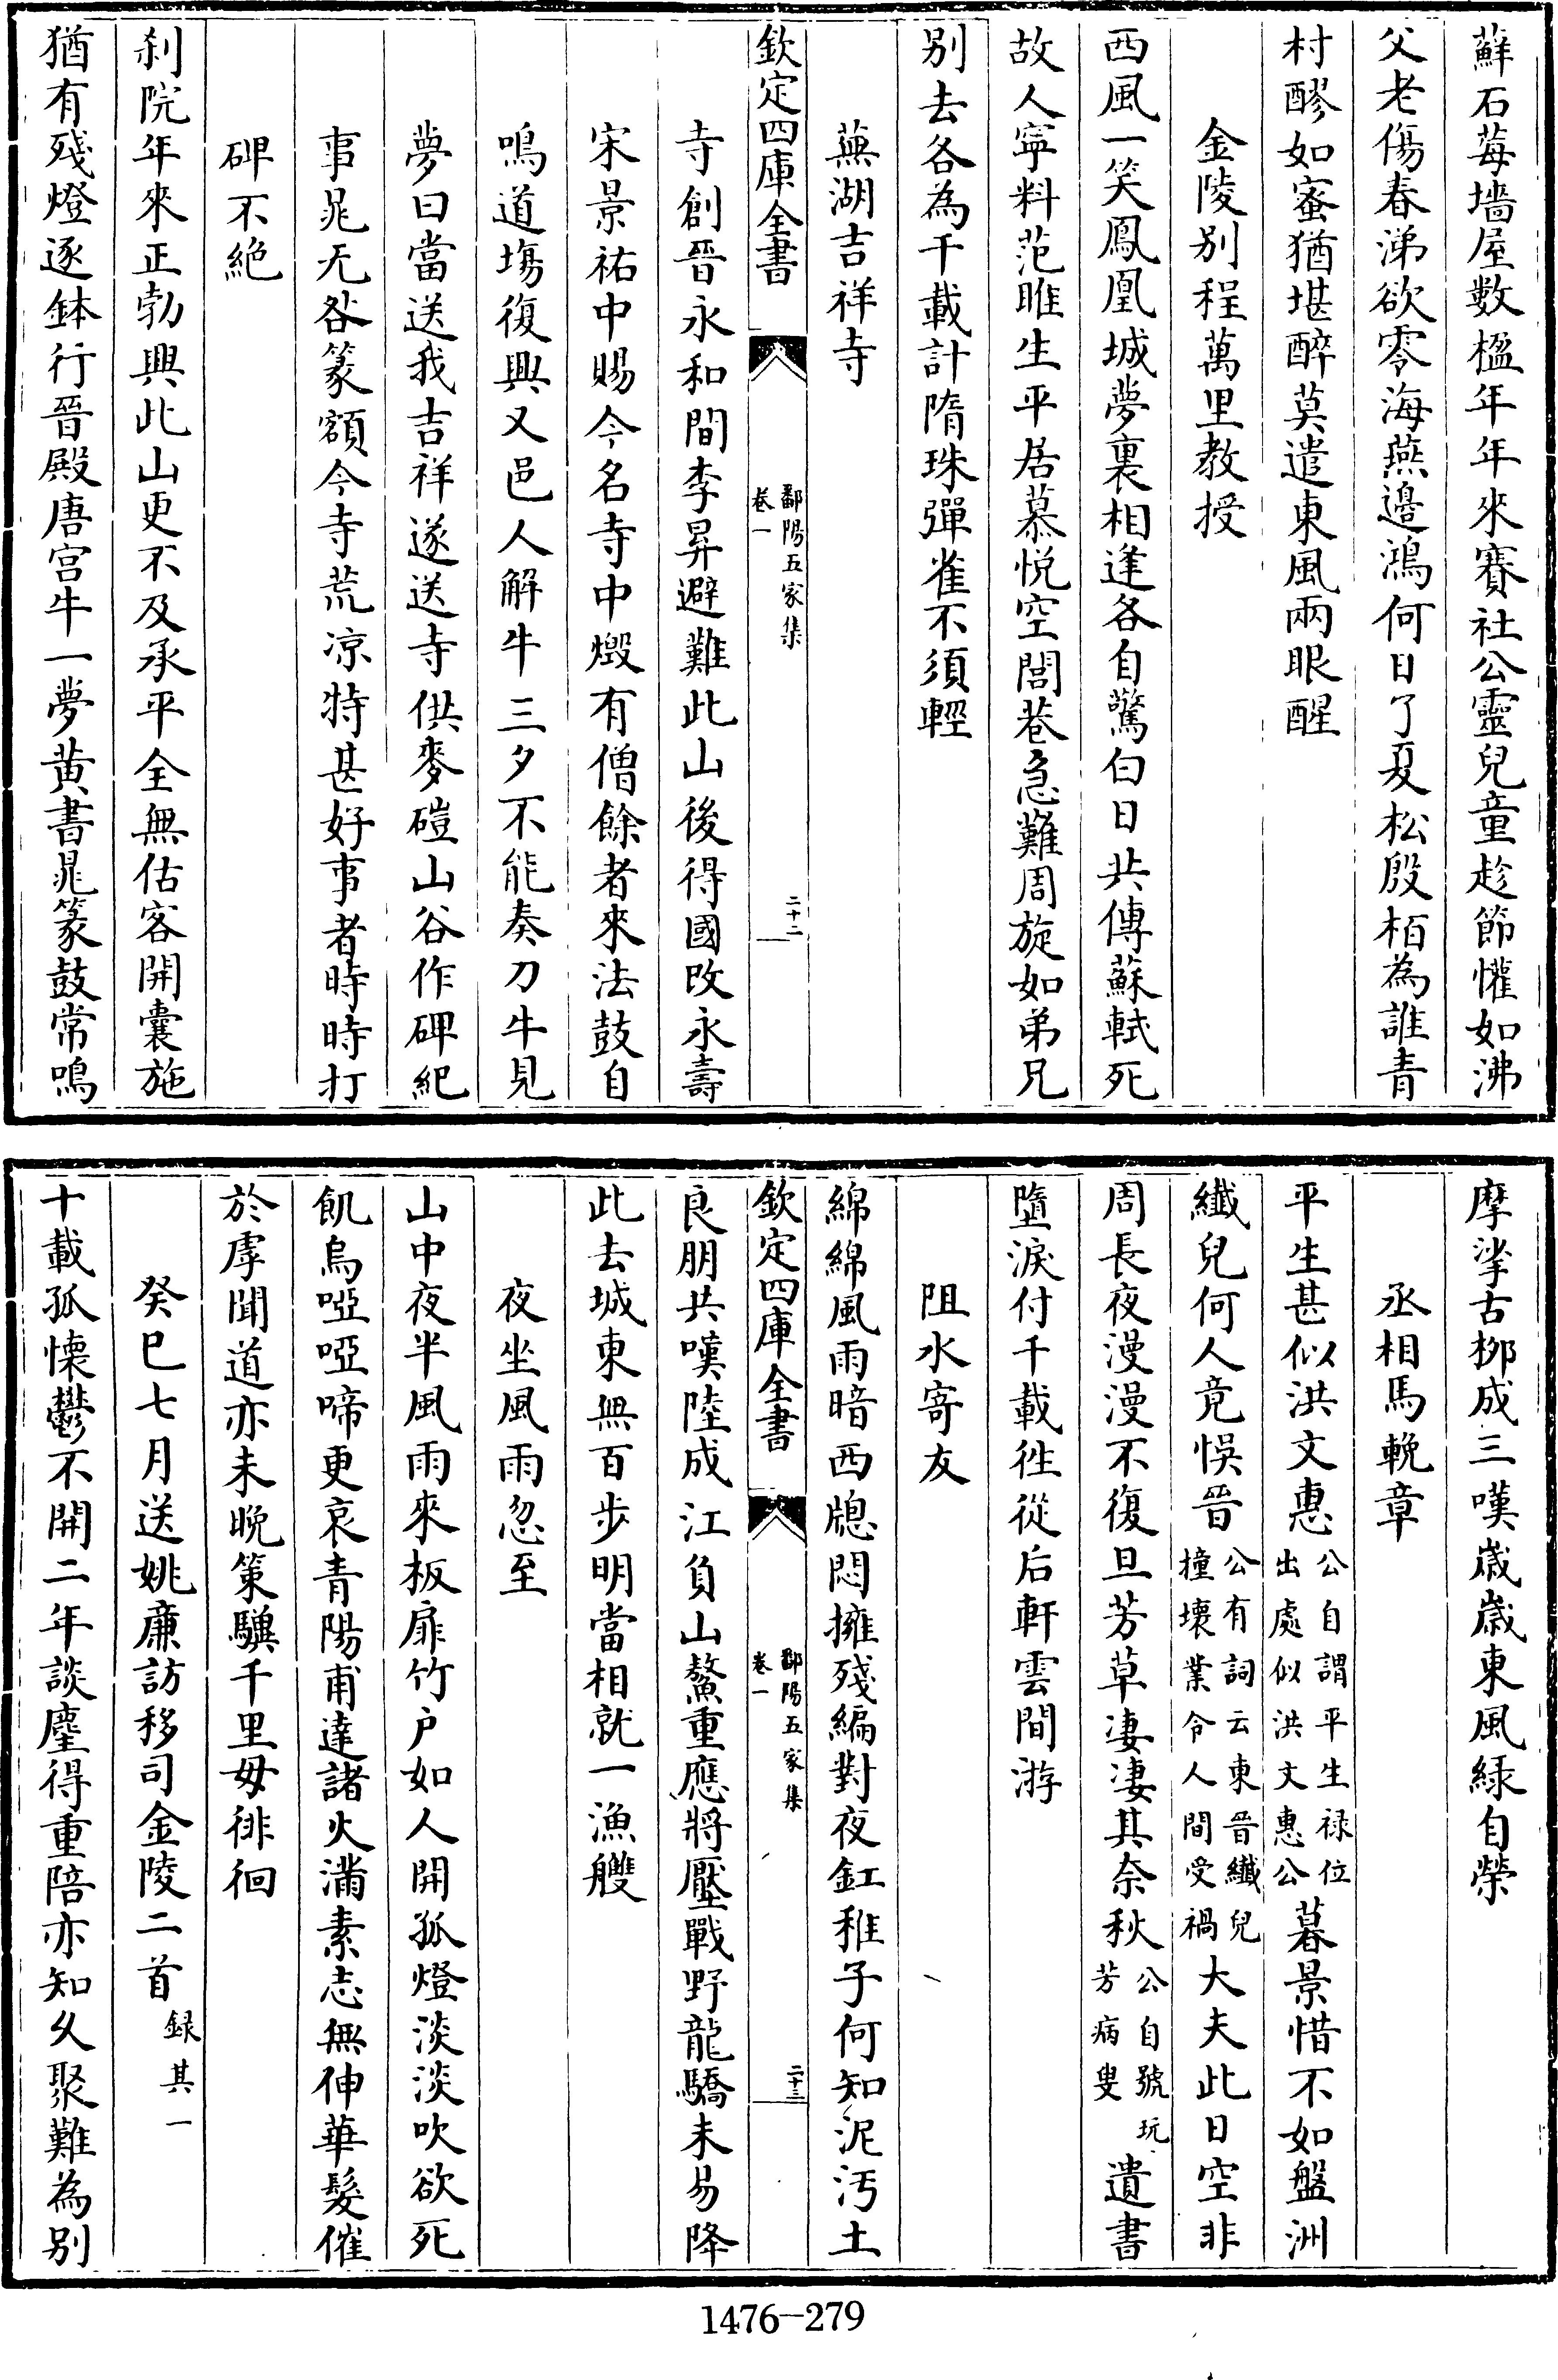 蘚石莓墻屋數楹年年來賽社公靈兒童趁節懽如沸
父老傷春涕欲零海燕邉鴻何日了夏松殷栢為誰青
村醪如蜜猶堪醉莫遣東風兩眼醒
金陵别程萬里教授
西風一笑鳳凰城夢裏相逢各自驚白日共傳蘇軾死
故人寜料范睢生平居慕悦空閭巷急難周旋如弟兄
别去各為千載計隋珠彈雀不須輕
蕪湖吉祥寺
欽定四庫全書
鄱陽五家集
卷一
二十二
寺創晉永和間李昇避難此山後得國改永壽
宋景祐中賜今名寺中燬有僧餘者來法鼓自
鳴道塲復興又邑人解牛三夕不能奏刀牛見
夢曰當送我吉祥遂送寺供麥磑山谷作碑紀
事晁无咎篆額今寺荒凉特甚好事者時時打
碑不絶
刹院年來正勃興此山更不及承平全無估客開囊施
猶有殘燈逐鉢行晉殿唐宫牛一夢黄書晁篆鼓常鳴
摩挲古栁成三嘆歳歳東風緑自榮
丞相馬輓章
平生甚似洪文惠公自謂平生禄位出處似洪文惠公暮景惜不如盤洲
纖兒何人竟悞晉公有詞云東晉纖兒撞壞業令人間受禍大夫此日空非
周長夜漫漫不復旦芳草凄凄其奈秋公自號玩芳病叟遺書
墮淚付千載徃從后軒雲間游
阻水寄友
綿綿風雨暗西牕悶擁殘編對夜釭稚子何知泥污土
欽定四庫全書
鄱陽五家集
卷一
二十三
良朋共嘆陸成江負山鰲重應將壓戰野龍驕未易降
此去城東無百步明當相就一漁艭
夜坐風雨忽至
山中夜半風雨來板扉竹户如人開孤燈淡淡吹欲死
飢烏啞啞啼更哀青陽甫達諸火滿素志無伸華髮催
於虖聞道亦未晚策驥千里毋徘徊
癸巳七月送姚廉訪移司金陵二首録其一
十載孤懐鬱不開二年談麈得重陪亦知久聚難為别
1476-279